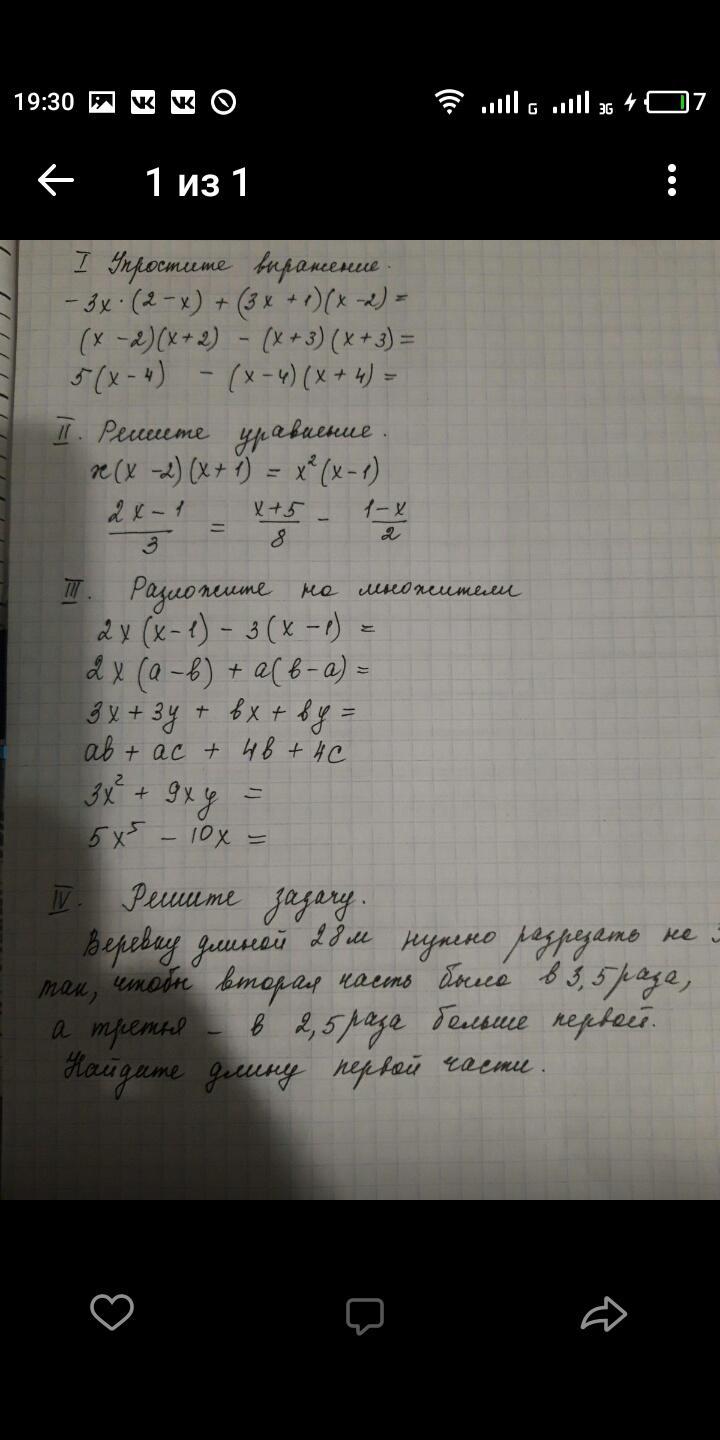 19:30 G 3G 7
1 из 1
I Упростите выражение.
-3x·(2-x) + (3x+1)(x-2)=
(x-2)(x+2) - (x+3)(x+3)=
5(x-4) - (x-4)(x+4)=
II. Решите уравнение.
x(x-2)(x+1) = x²(x-1)
(2x-1)/3 = (x+5)/8 - (1-x)/2
III. Разложите на множители
2x(x-1) - 3(x-1) =
2x(a-b) + a(b-a)=
3x+3y + bx+by=
ab+ac + 4b+4c
3x² + 9xy =
5x⁵ - 10x =
IV. Решите задачу.
Веревку длиной 28м нужно разрезать на 3
так, чтобы вторая часть было в 3,5 раза,
а третья - в 2,5 раза больше первой.
Найдите длину первой части.